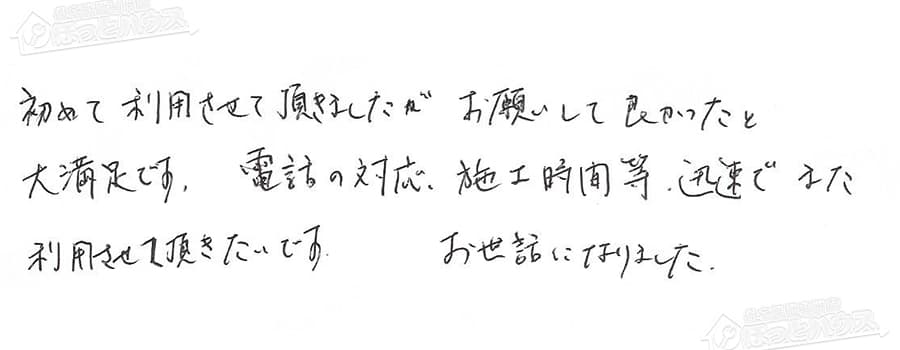 ほっとハウス
初めて利用させて頂きましたが お願いして良かったと
大満足です. 電話の対応、施工時間等、迅速で また
利用させて頂きたいです. お世話になりました.
ほっとハウス